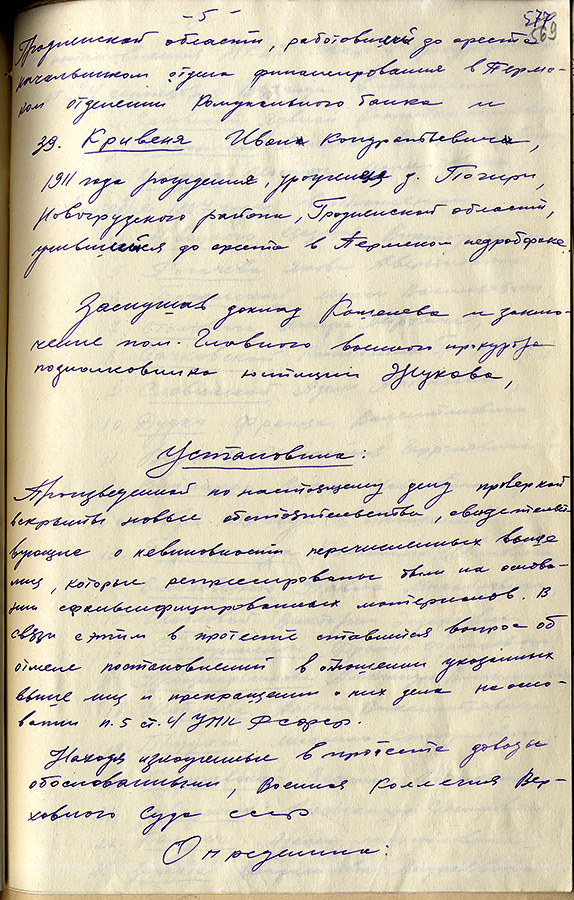 - 5 -
577
569
Гродненской области, работовший до ареста
начальником отдела финансирования в Пермс-
ком отделении Комунального банка и
39. Кривеня Иван Кондратьевич,
1911 года рождения, уроженец д. Погири,
Новогрудского района, Гродненской области,
учившийся до ареста в Пермском педрабфаке.
Заслушав доклад Кошелева и заклю-
чение пом. Главного военного прокурора
подполковника юстиции Жукова,
Установила:
Произведенной по настоящему делу проверкой
вскрыты новые обстоятельства, свидетельст-
вующие о невиновности перечисленных выше
лиц, которые репрессированы были на основа-
нии сфальсифицированных материалов. В
связи с этим в протесте ставится вопрос об
отмене постановлений в отношении указанных
выше лиц и прекращении о них дела на осно-
вании п. 5 ст. 4 УПК РСФСР.
Находя изложенные в протесте доводы
обоснованными, Военная Коллегия Вер-
ховного Суда СССР
Определила: